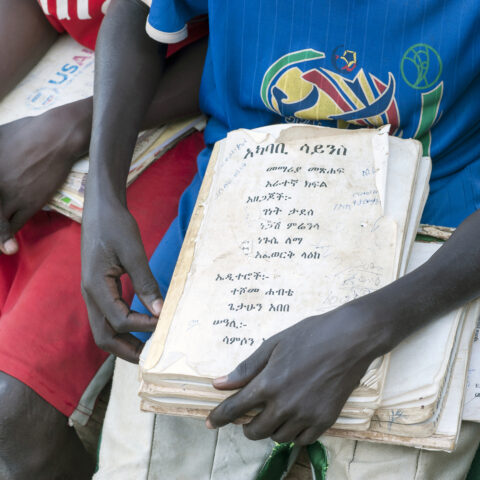 USAI
አካባቢ ሳይንስ
መማሪያ መጽሐፍ
አራተኛ ክፍል
አዘጋጆች:-
ገነት ታደሰ
ነጋሽ ምሬንሳ
ነጉሴ ለማ
አፈወርቅ ላዕከ
ኤዲተሮች:-
ተሾመ ሐብቴ
ጌታሁን አበበ
ሠዓሊ:-
ሳምሶን